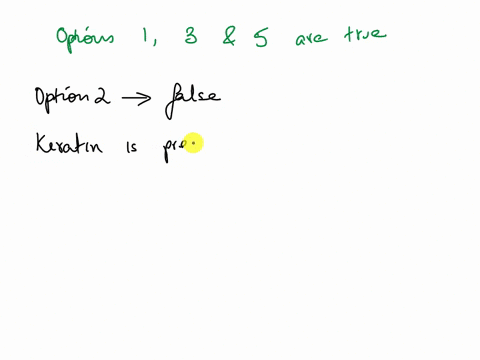 Options 1, 3 & 5 are true
Option 2 → false
Keratin is pre